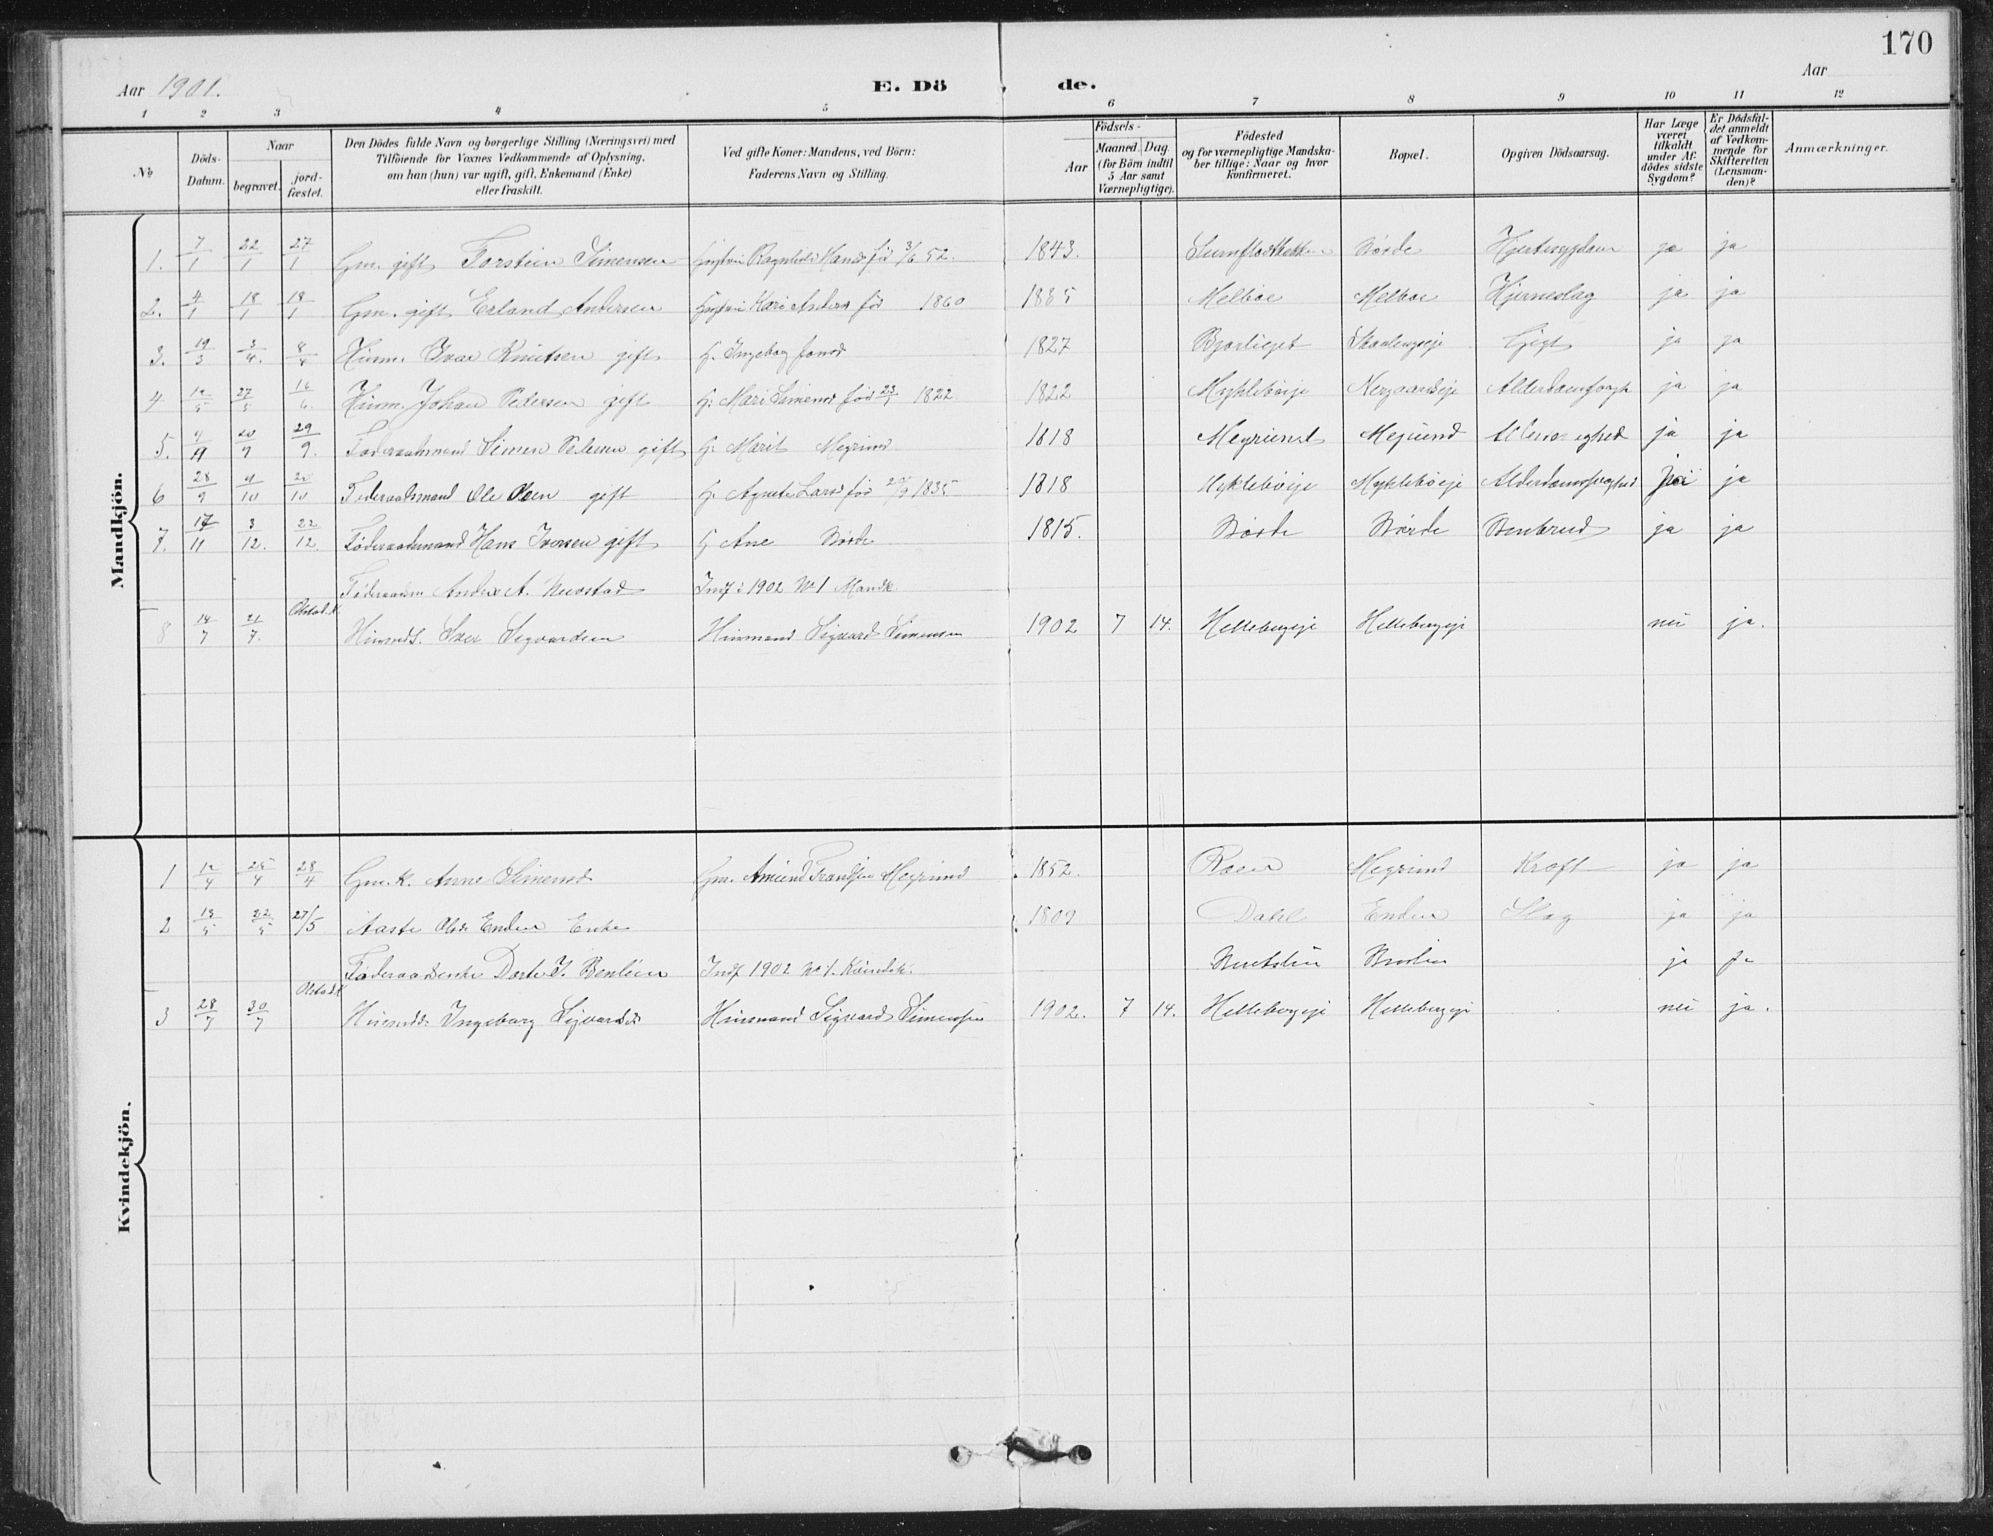 170
Aar 1901. E. Dö de. Aar
1 2 3 4 5 6 7 8 9 10 11 12
№ Döds-Datum. Naar begravet. jordfæstet. Den Dödes fulde Navn og borgerlige Stilling (Næringsvei) med Tilföiende for Voxnes Vedkommende af Oplysning, om han (hun) var ugift, gift, Enkemand (Enke) eller fraskilt. Ved gifte Koner: Mandens, ved Börn: Faderens Navn og Stilling. Födsels- Aar Maaned. Dag. (for Börn indtil 5 Aar samt Værnepligtige). Födested og for værnepligtige Mandskaber tillige: Naar og hvor konfirmeret. Bopæl. Opgiven Dödsaarsag. Har Læge været tilkaldt under Afdödes sidste Sygdom? Er Dödsfaldet anmeldt af Vedkommende for Skifteretten (Lensmanden)? Anmærkninger.
Mandkjön.
1. 7/1 22/1 27/1 Gm. gift Torstein Simensen Hustru Ragnhild Hansd. fød 3/6 52. 1843. Børde Hjertesygdom ja ja
2. 4/1 18/1 18/1 Gm. gift Erland Andersen Hustru Kari Andersd. fød 1860 1885 Melboe Melboe Hjerneslag ja ja
3. 19/3 3/4. 8/4 Husm. Ivar Knutsen gift H. Ingebog Jonsd 1827 Bjørlieget Gigt ja ja
4 27/5 16/6. Husm. Johan Pedersen gift H. Mari Simensd fød 1822. 1822 Myklebøeje Nergaardseje ja ja
5. 20/9 29/9. Føderaadsmand Simen Pedersen gift H. Marit Megrund 1818 Megrund Megrund ja ja
6 28/9 /10 /10 Føderaadsmand Ole Olsen gift H. Agnete Larsd fød 1835 1818 Myklebøeje Myklebøeje Alderdomssvaghed ja
7. 17/11 3/12. 22/12. Føderaadsmand Hans Iversen gift H Ane Børde 1815. Børde Børde Benbrud ja ja
Føderaadsm Anders A. Indf i 1902 № 1 Mandk.
8 14/7 21/7. Olstad K Husmds. Iver Sigvardsen Husmand Sigvard Simensen 1902 7 14. Hellebergeje Hellebergeje nei ja.
Kvindekjön.
1 12/4 25/4 28/4 Gm. K. Anne Simensd Gm. Amund Frandsen Megrund 1852. Roen Megrund Kræft ja ja
2 13/5 22/5 27/5 Aaste Olsd. Enden Enke 1809 Dahl Enden Slag ja ja
Føderaadsenke Dorte J. Benlien Indf 1902 № 1. Kvindek. ja ja
3 28/7 30/7 Olstad K Husmdd. Ingeborg Sigvardsd. Husmand Sigvard Simensen 1902. 7 14. Hellebergeje Hellebergeje nei ja.